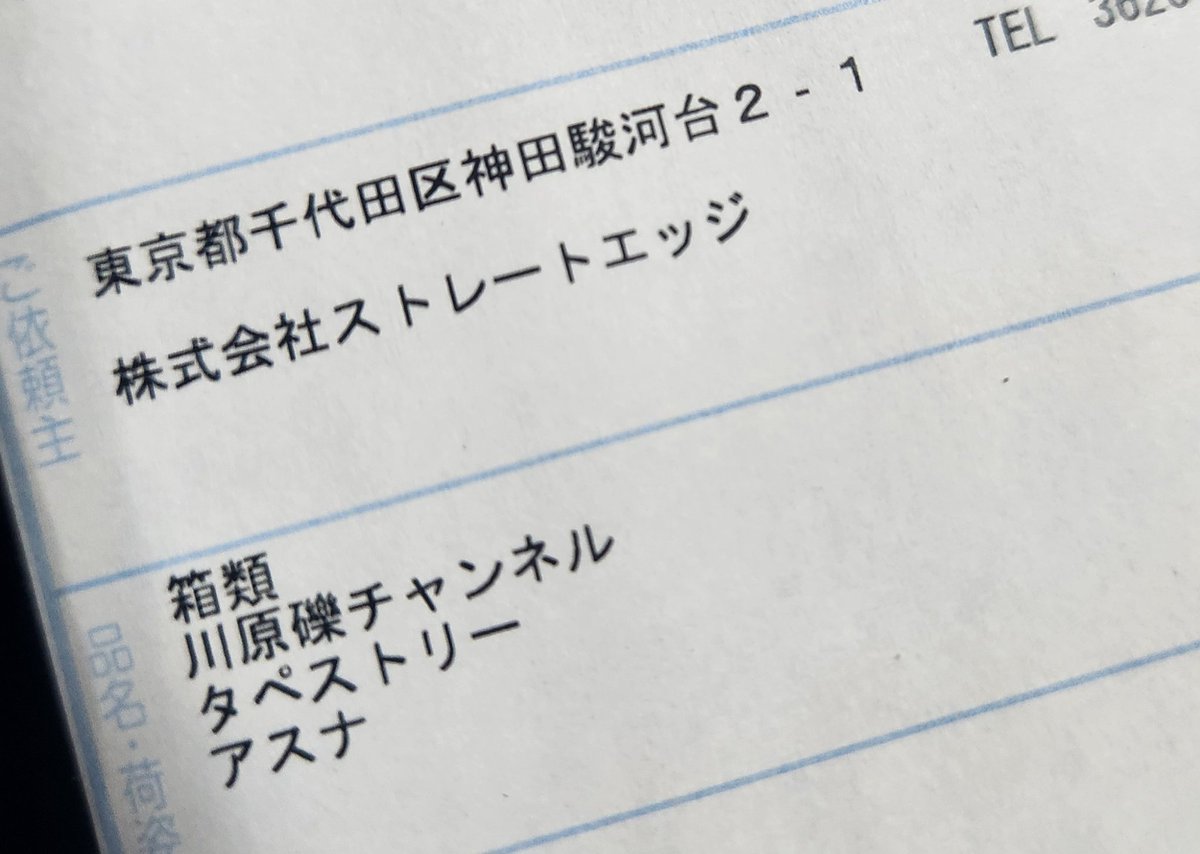 TEL 3626
東京都千代田区神田駿河台2-1
株式会社ストレートエッジ
ご依頼主
箱類
川原礫チャンネル
タペストリー
アスナ
品名・荷